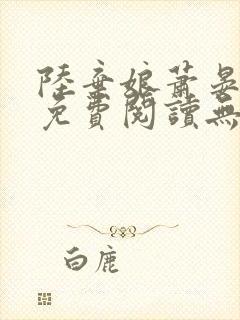 陸棄娘蕭晏
免費閱讀無
白鹿